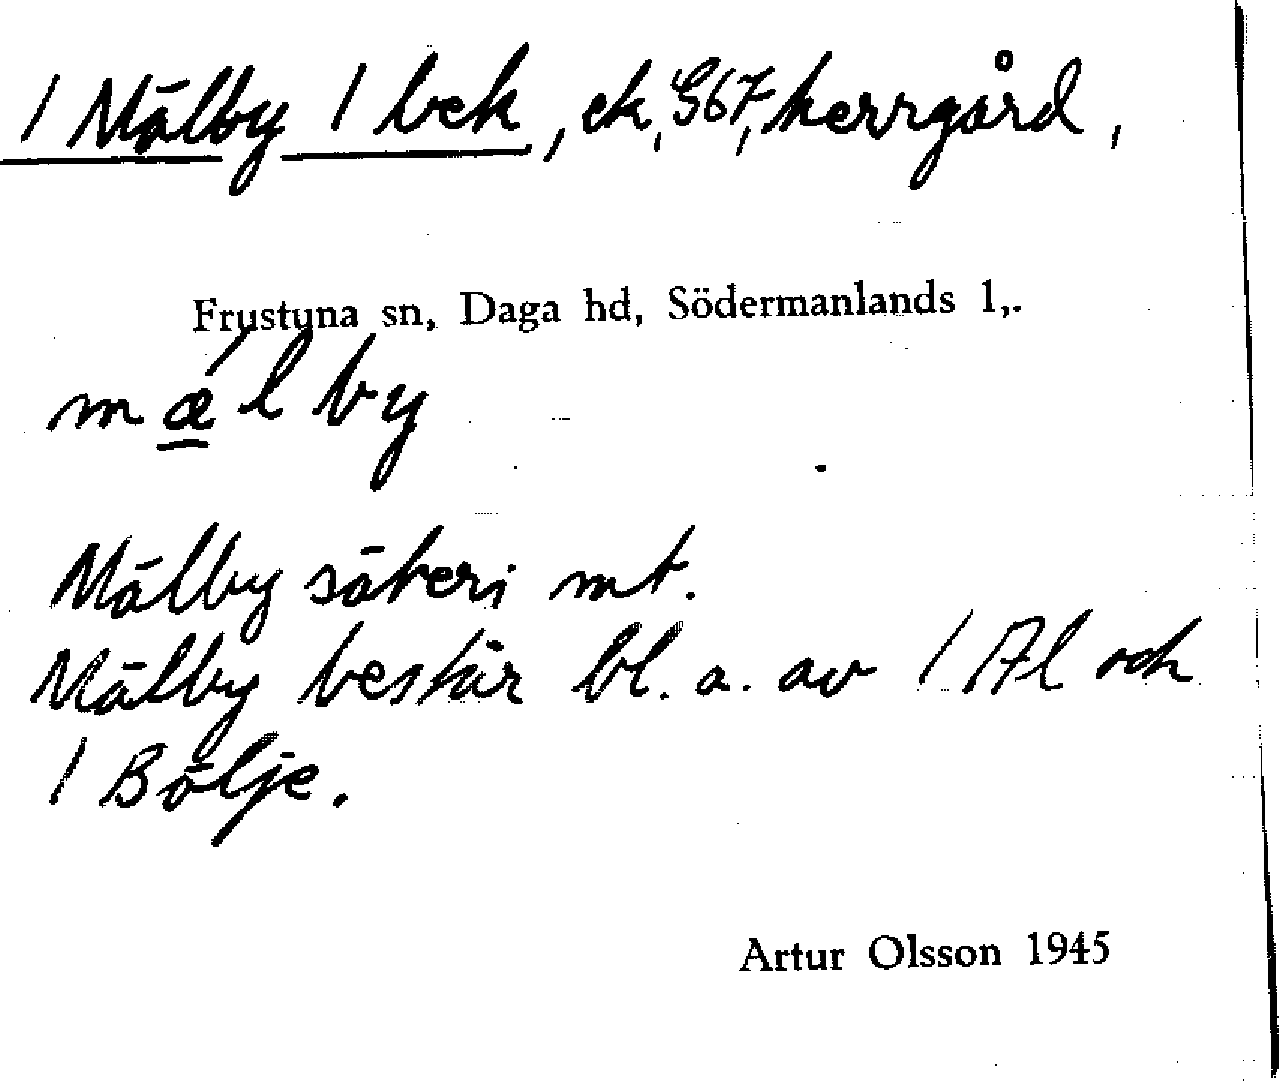 / Mälby / bek, ek, G67, herrgård,
Frustuna sn, Daga hd, Södermanlands l,.
mǽlby
Mälby säteri mt.
Mälby består bl. a. av / Al och
/ Bölje.
Artur Olsson 1945